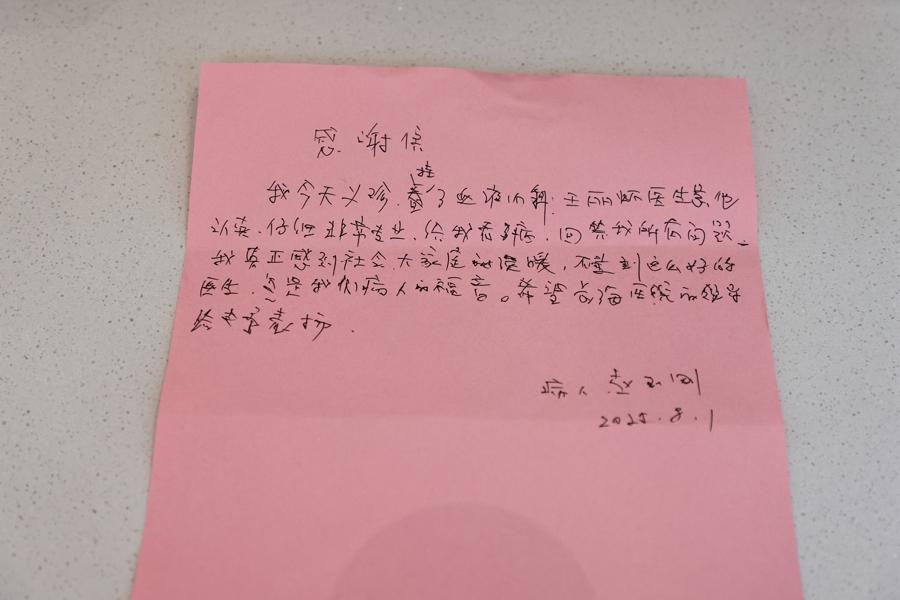 感谢信
挂
我今天义诊，看了血液内科，王丽娜医生
认真、仔细非常专业，给我看了病，回答我所有问题。
我真正感到社会大家庭的温暖，碰到这么好的
医生，这是我们病人的福音。希望长海医院的领导
给予表扬。
病人
2025.8.1